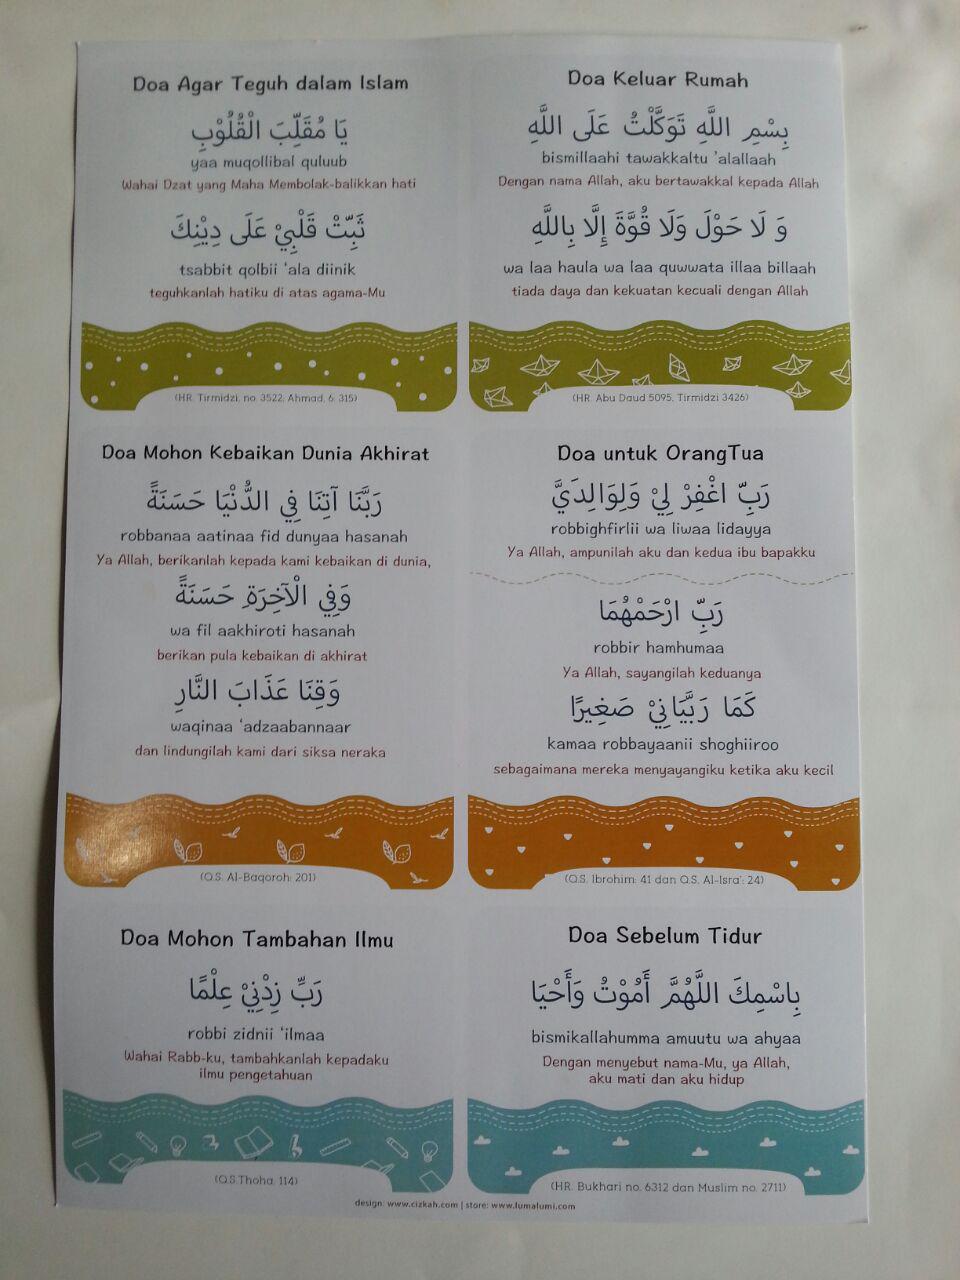 Doa Agar Teguh dalam Islam
يَا مُقَلِّبَ الْقُلُوْبِ
yaa muqollibal quluub
Wahai Dzat yang Maha Membolak-balikkan hati
ثَبِّتْ قَلْبِيْ عَلَى دِيْنِكَ
tsabbit qolbii ‘ala diinik
teguhkanlah hatiku di atas agama-Mu
(HR. Tirmidzi, no. 3522, Ahmad, 6: 315)
Doa Keluar Rumah
بِسْمِ اللَّهِ تَوَكَّلْتُ عَلَى اللَّهِ
bismillaahi tawakkaltu ’alallaah
Dengan nama Allah, aku bertawakkal kepada Allah
وَ لَا حَوْلَ وَلَا قُوَّةَ إِلَّا بِاللَّهِ
wa laa haula wa laa quwwata illaa billaah
tiada daya dan kekuatan kecuali dengan Allah
(HR. Abu Daud 5095, Tirmidzi 3426)
Doa Mohon Kebaikan Dunia Akhirat
رَبَّنَا آتِنَا فِي الدُّنْيَا حَسَنَةً
robbanaa aatinaa fid dunyaa hasanah
Ya Allah, berikanlah kepada kami kebaikan di dunia,
وَفِي الْآخِرَةِ حَسَنَةً
wa fil aakhiroti hasanah
berikan pula kebaikan di akhirat
وَقِنَا عَذَابَ النَّارِ
waqinaa ‘adzaabannaar
dan lindungilah kami dari siksa neraka
(Q.S. Al-Baqoroh: 201)
Doa untuk OrangTua
رَبِّ اغْفِرْ لِيْ وَلِوَالِدَيَّ
robbighfirlii wa liwaa lidayya
Ya Allah, ampunilah aku dan kedua ibu bapakku
رَبِّ ارْحَمْهُمَا
robbir hamhumaa
Ya Allah, sayangilah keduanya
كَمَا رَبَّيَانِيْ صَغِيرًا
kamaa robbayaanii shoghiiroo
sebagaimana mereka menyayangiku ketika aku kecil
(Q.S. Ibrohim: 41 dan Q.S. Al-Isra’: 24)
Doa Mohon Tambahan Ilmu
رَبِّ زِدْنِيْ عِلْمًا
robbi zidnii ‘ilmaa
Wahai Rabb-ku, tambahkanlah kepadaku
ilmu pengetahuan
(Q.S.Thoha: 114)
Doa Sebelum Tidur
بِاسْمِكَ اللَّهُمَّ أَمُوْتُ وَأَحْيَا
bismikallahumma amuutu wa ahyaa
Dengan menyebut nama-Mu, ya Allah,
aku mati dan aku hidup
(HR. Bukhari no. 6312 dan Muslim no. 2711)
design: www.cizkah.com | store: www.lumalumi.com